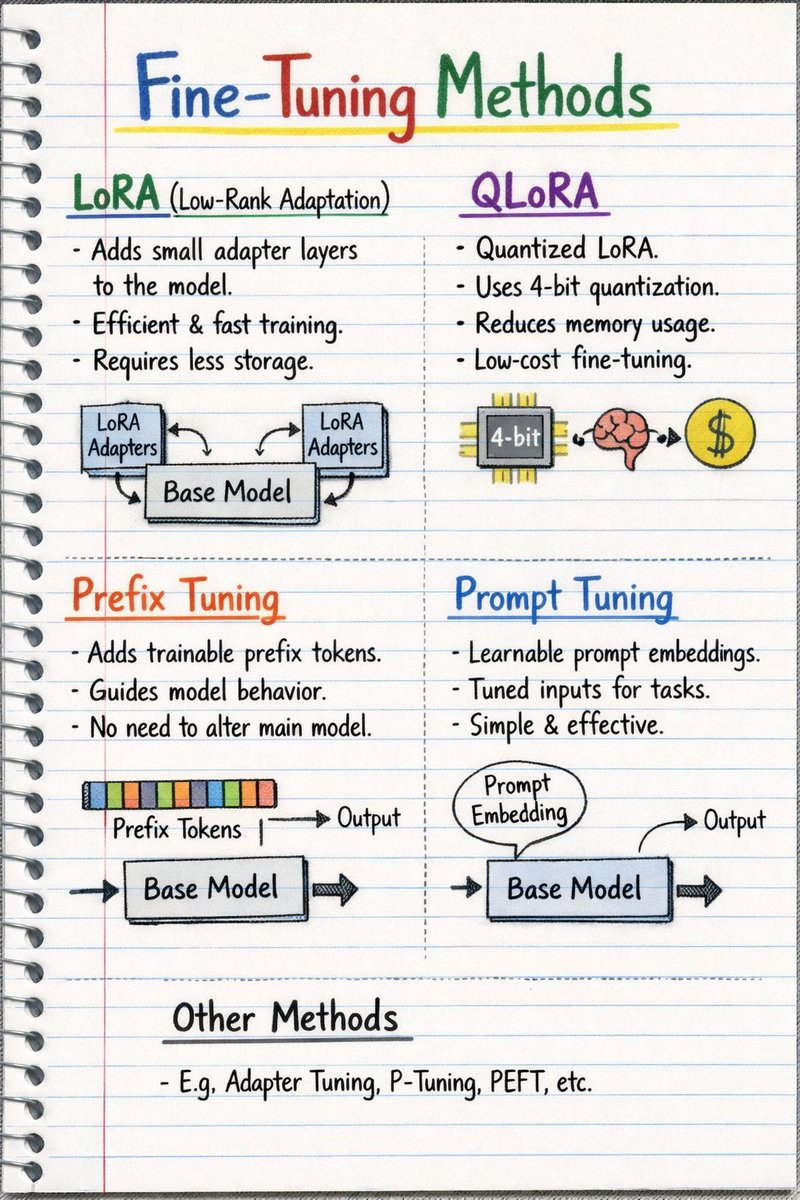 Fine-Tuning Methods
LoRA (Low-Rank Adaptation)
- Adds small adapter layers
to the model.
- Efficient & fast training.
- Requires less storage.
LoRA
Adapters
LoRA
Adapters
Base Model
QLoRA
- Quantized LoRA.
- Uses 4-bit quantization.
- Reduces memory usage.
- Low-cost fine-tuning.
4-bit
$
Prefix Tuning
- Adds trainable prefix tokens.
- Guides model behavior.
- No need to alter main model.
Prefix Tokens
Output
Base Model
Prompt Tuning
- Learnable prompt embeddings.
- Tuned inputs for tasks.
- Simple & effective.
Prompt
Embedding
Output
Base Model
Other Methods
- E.g, Adapter Tuning, P-Tuning, PEFT, etc.